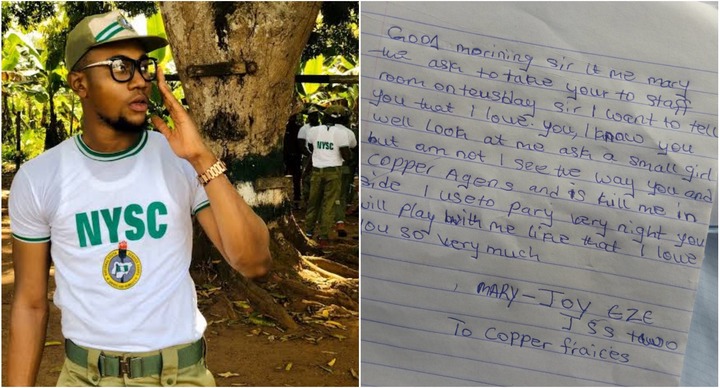 NYSC
NYSC
NYSC
Good morining sir it me mary
the ask to take your to staff
room on tousblay sir I want to tell
you that I love. you, I know you
well look at me ask a small girl
but am not I see the way you and
copper Agens and is kill me in
side I useto pary very night you
will play with me like that I love
you so very much
, MARY-JOY EZE
JSS two
To copper fraices